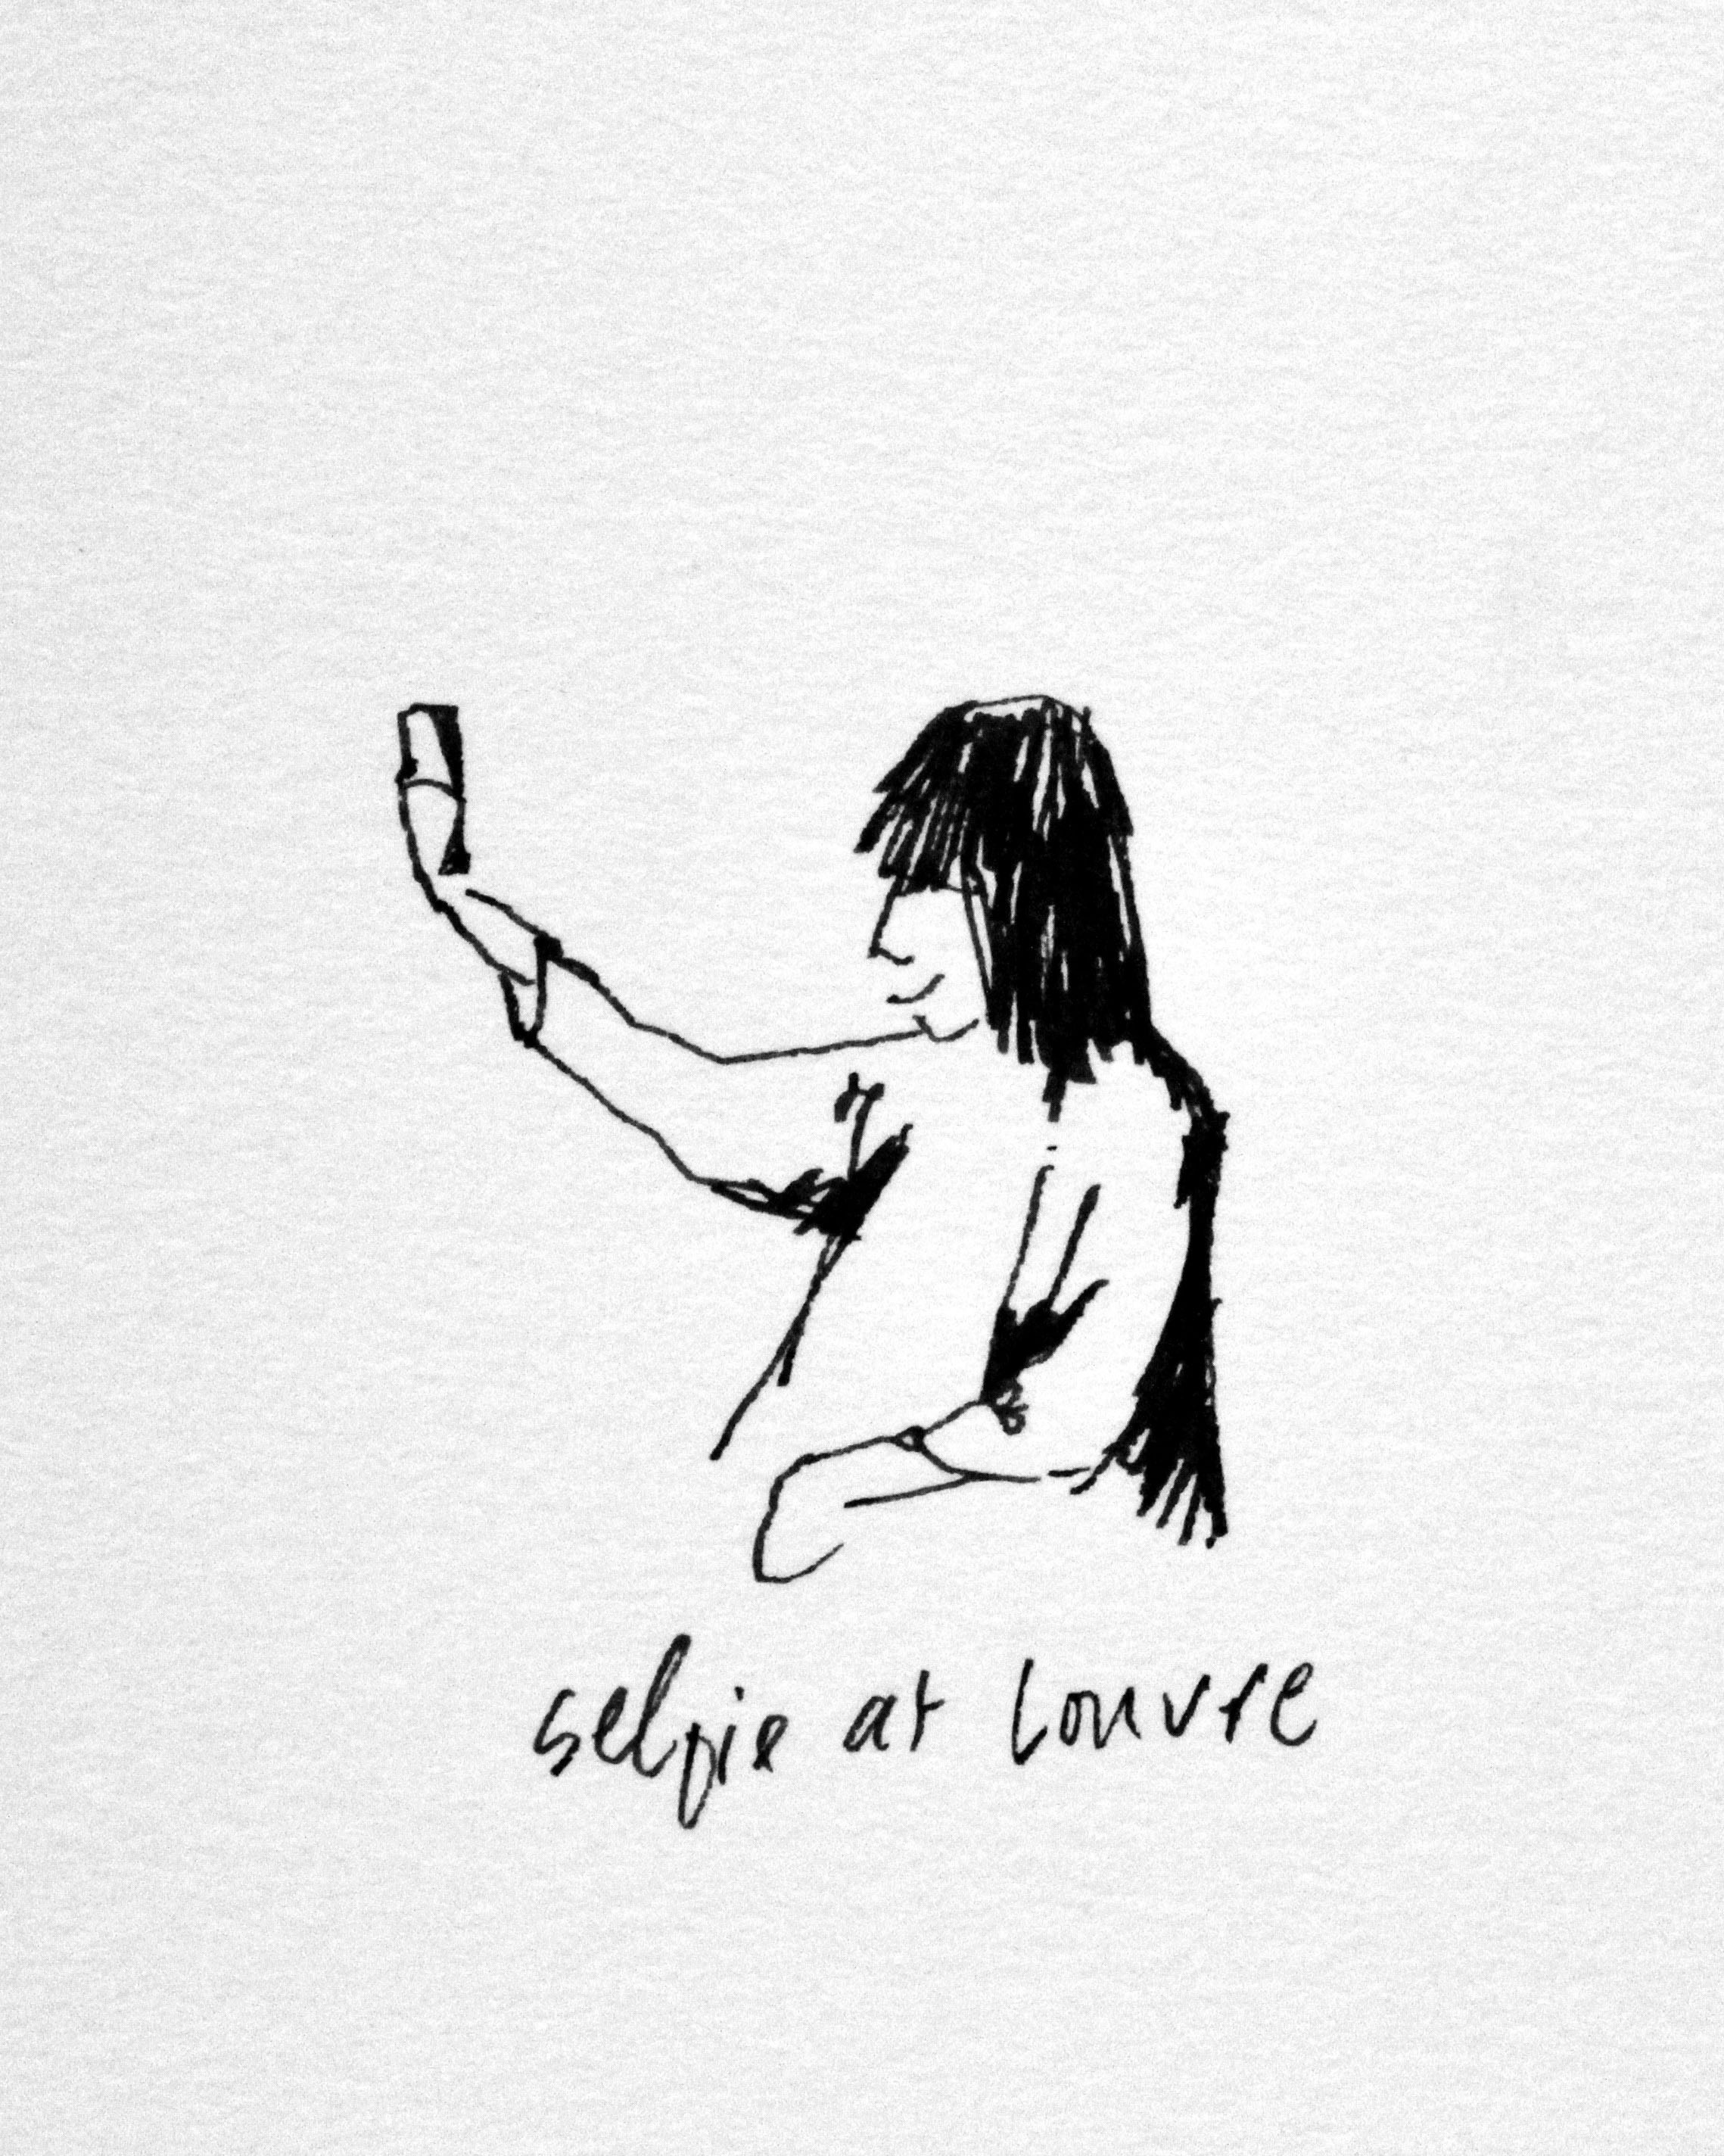 selfie at Louvre